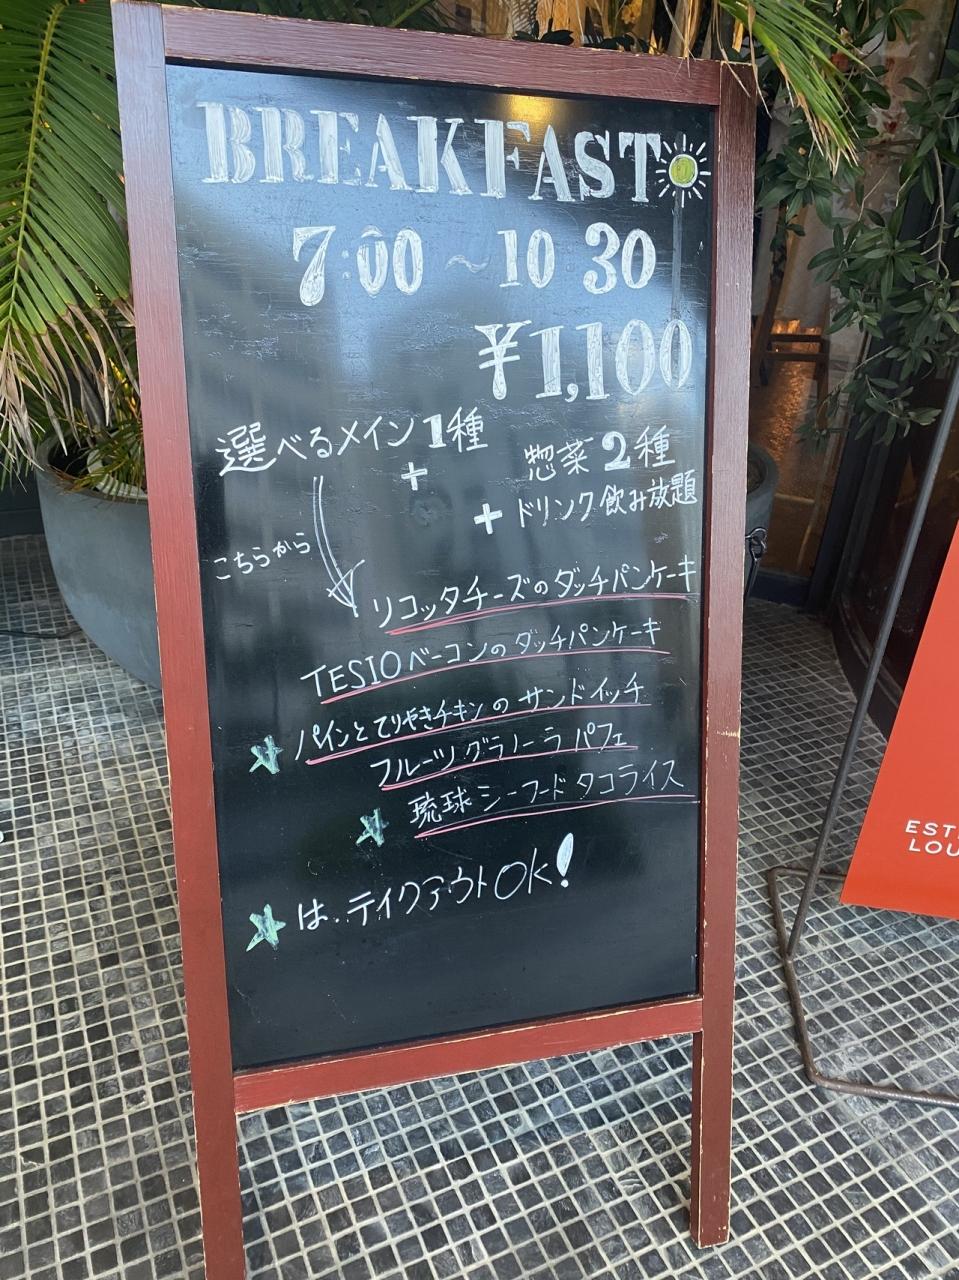 BREAKFAST
7:00 ~ 10 30
¥1,100
選べるメイン1種
+
惣菜2種
+ ドリンク飲み放題
こちらから
リコッタチーズのダッチパンケーキ
TESIOベーコンのダッチパンケーキ
★ パインとてりやきチキンのサンドイッチ
フルーツグラノーラパフェ
★ 琉球シーフードタコライス
★は、テイクアウトOK!
EST
LOU